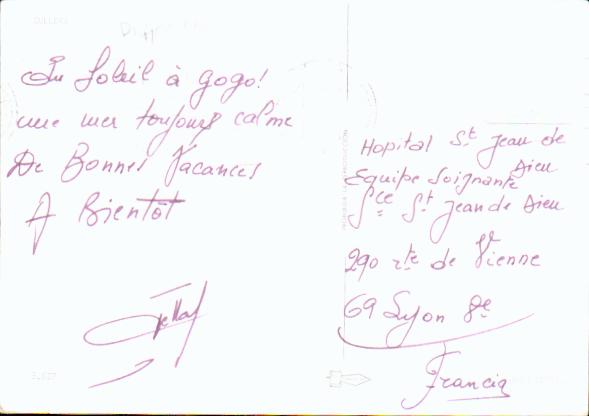 Du Soleil à gogo!
une mer toujours calme
De Bonnes Vacances
A Bientôt
Hopital St Jean de
Dieu
Equipe Soignante
Sce St Jean de Dieu
290 rte de Vienne
69 Lyon 8e
Francia